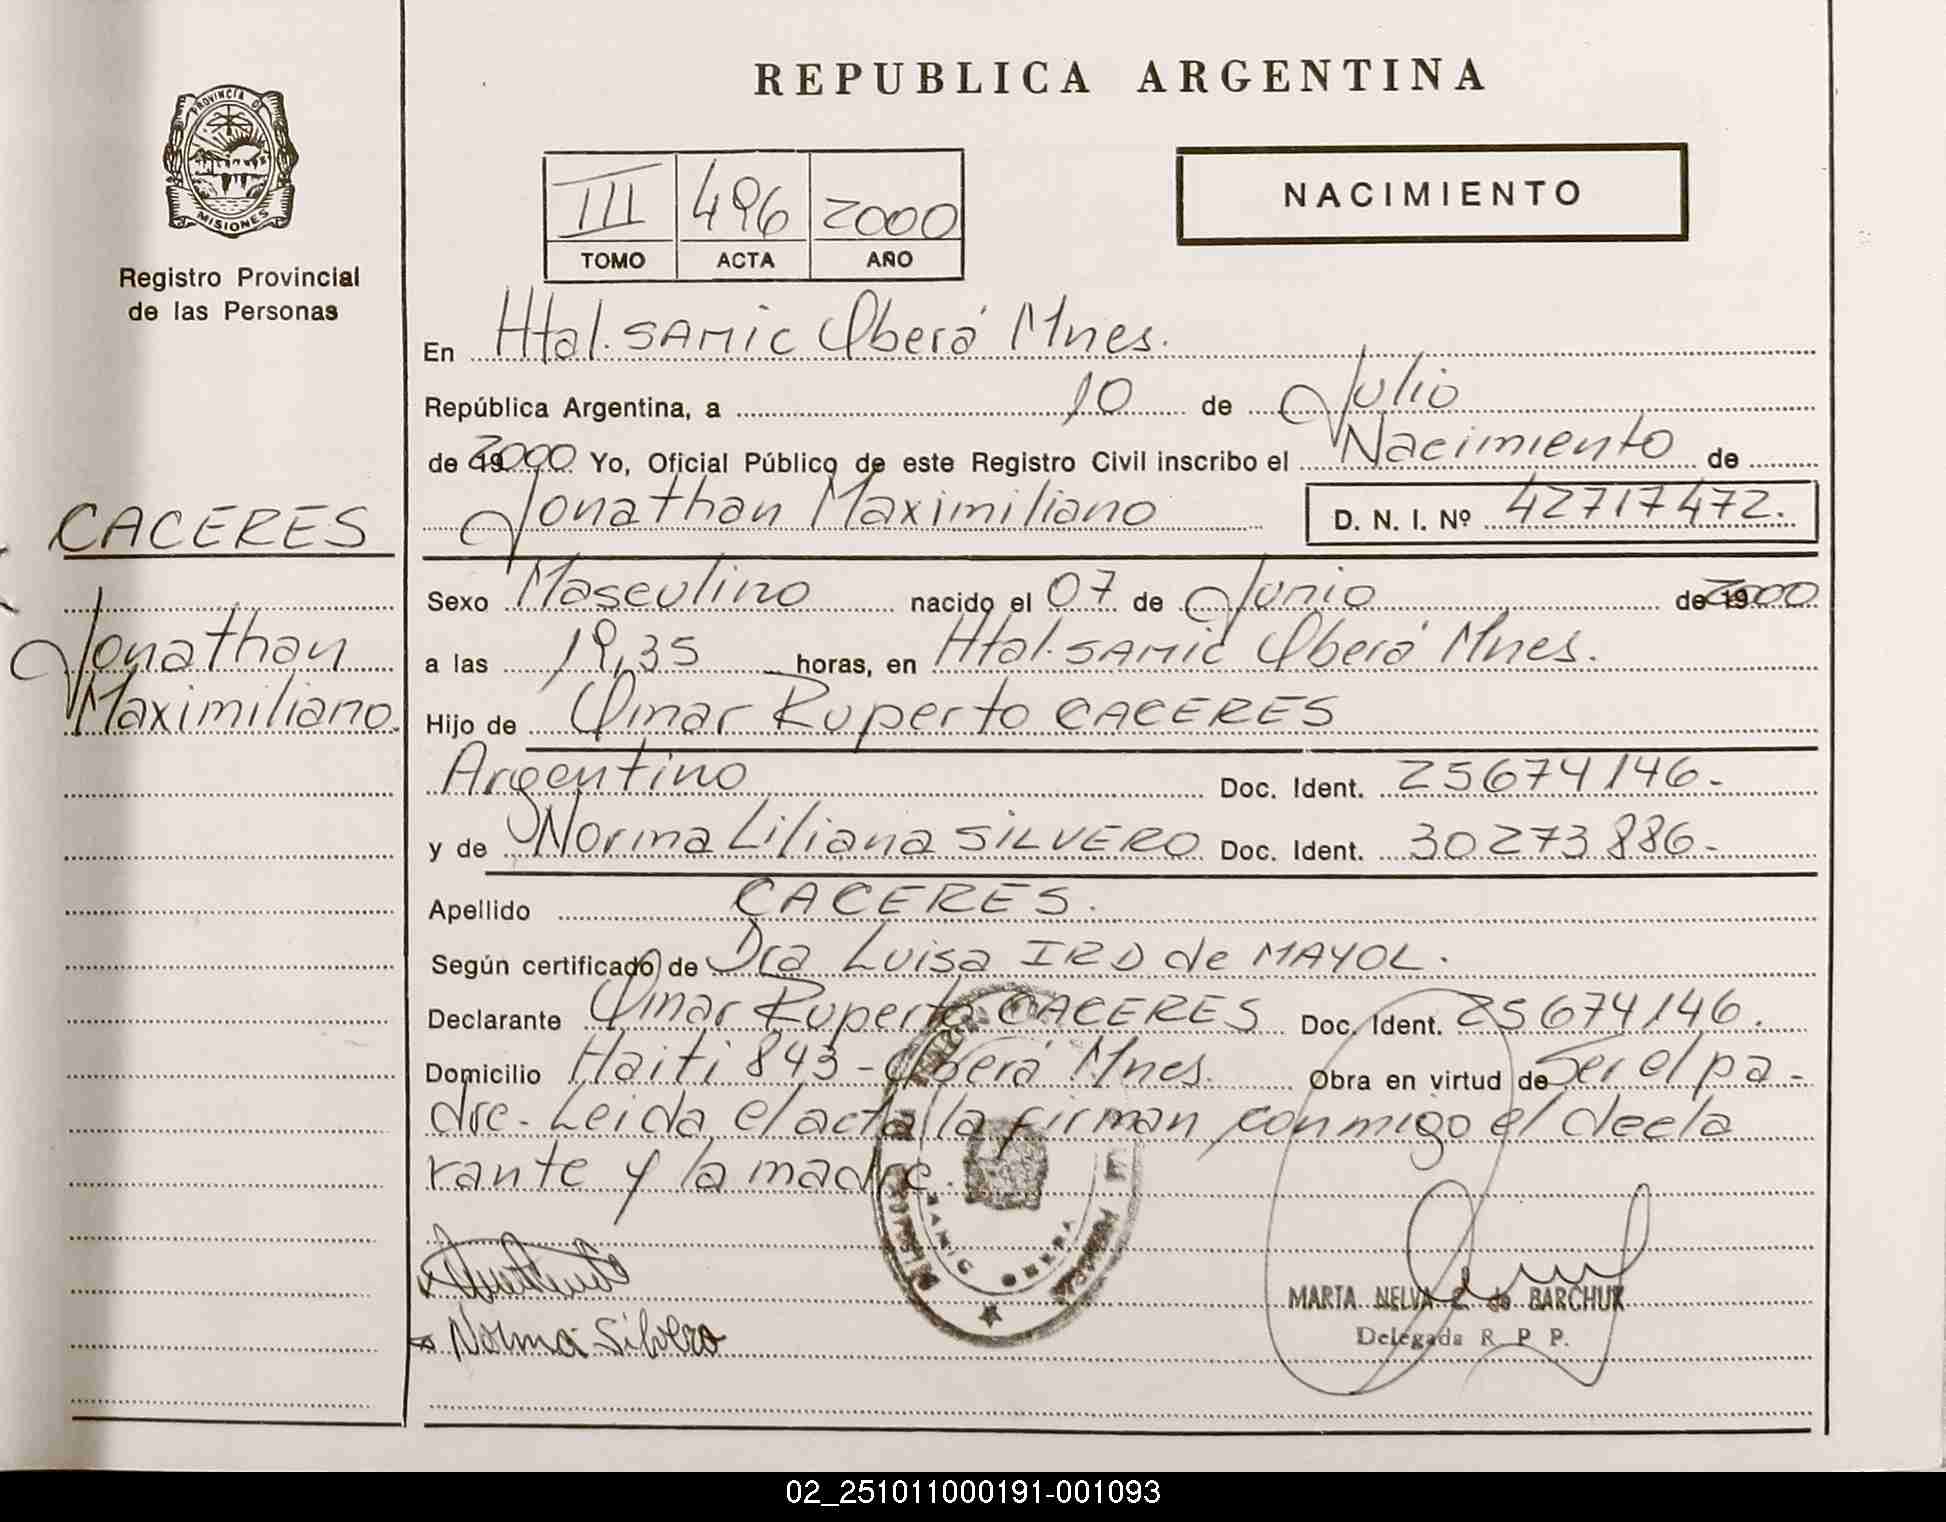 REPUBLICA ARGENTINA
PROVINCIA DE
MISIONES
Registro Provincial
de las Personas
III 496 2000
TOMO ACTA AÑO
NACIMIENTO
En Htal. SAMIC Oberá Mnes.
República Argentina, a 10 de Julio
de 2000 Yo, Oficial Público de este Registro Civil inscribo el Nacimiento de
Jonathan Maximiliano D. N. I. Nº 42717472.
CACERES
Jonathan
Maximiliano.
Sexo Masculino nacido el 07 de Junio de 2000
a las 19,35 horas, en Htal. SAMIC Oberá Mnes.
Hijo de Omar Ruperto CACERES
Argentino Doc. Ident. 25674146-
y de Norma Liliana SILVERO Doc. Ident. 30273886-
Apellido CACERES.
Según certificado de Dra Luisa IRD de MAYOL.
Declarante Omar Ruperto CACERES Doc. Ident. 25674146.
Domicilio Haiti 843 - Oberá Mnes. Obra en virtud de Ser el pa-
dre. Leida el acta la firman conmigo el decla
rante y la madre.
SAMIC OBERA
Norma Silvero
MARTA NELVA de BARCHUK
Delegada R. P. P.
02_251011000191-001093